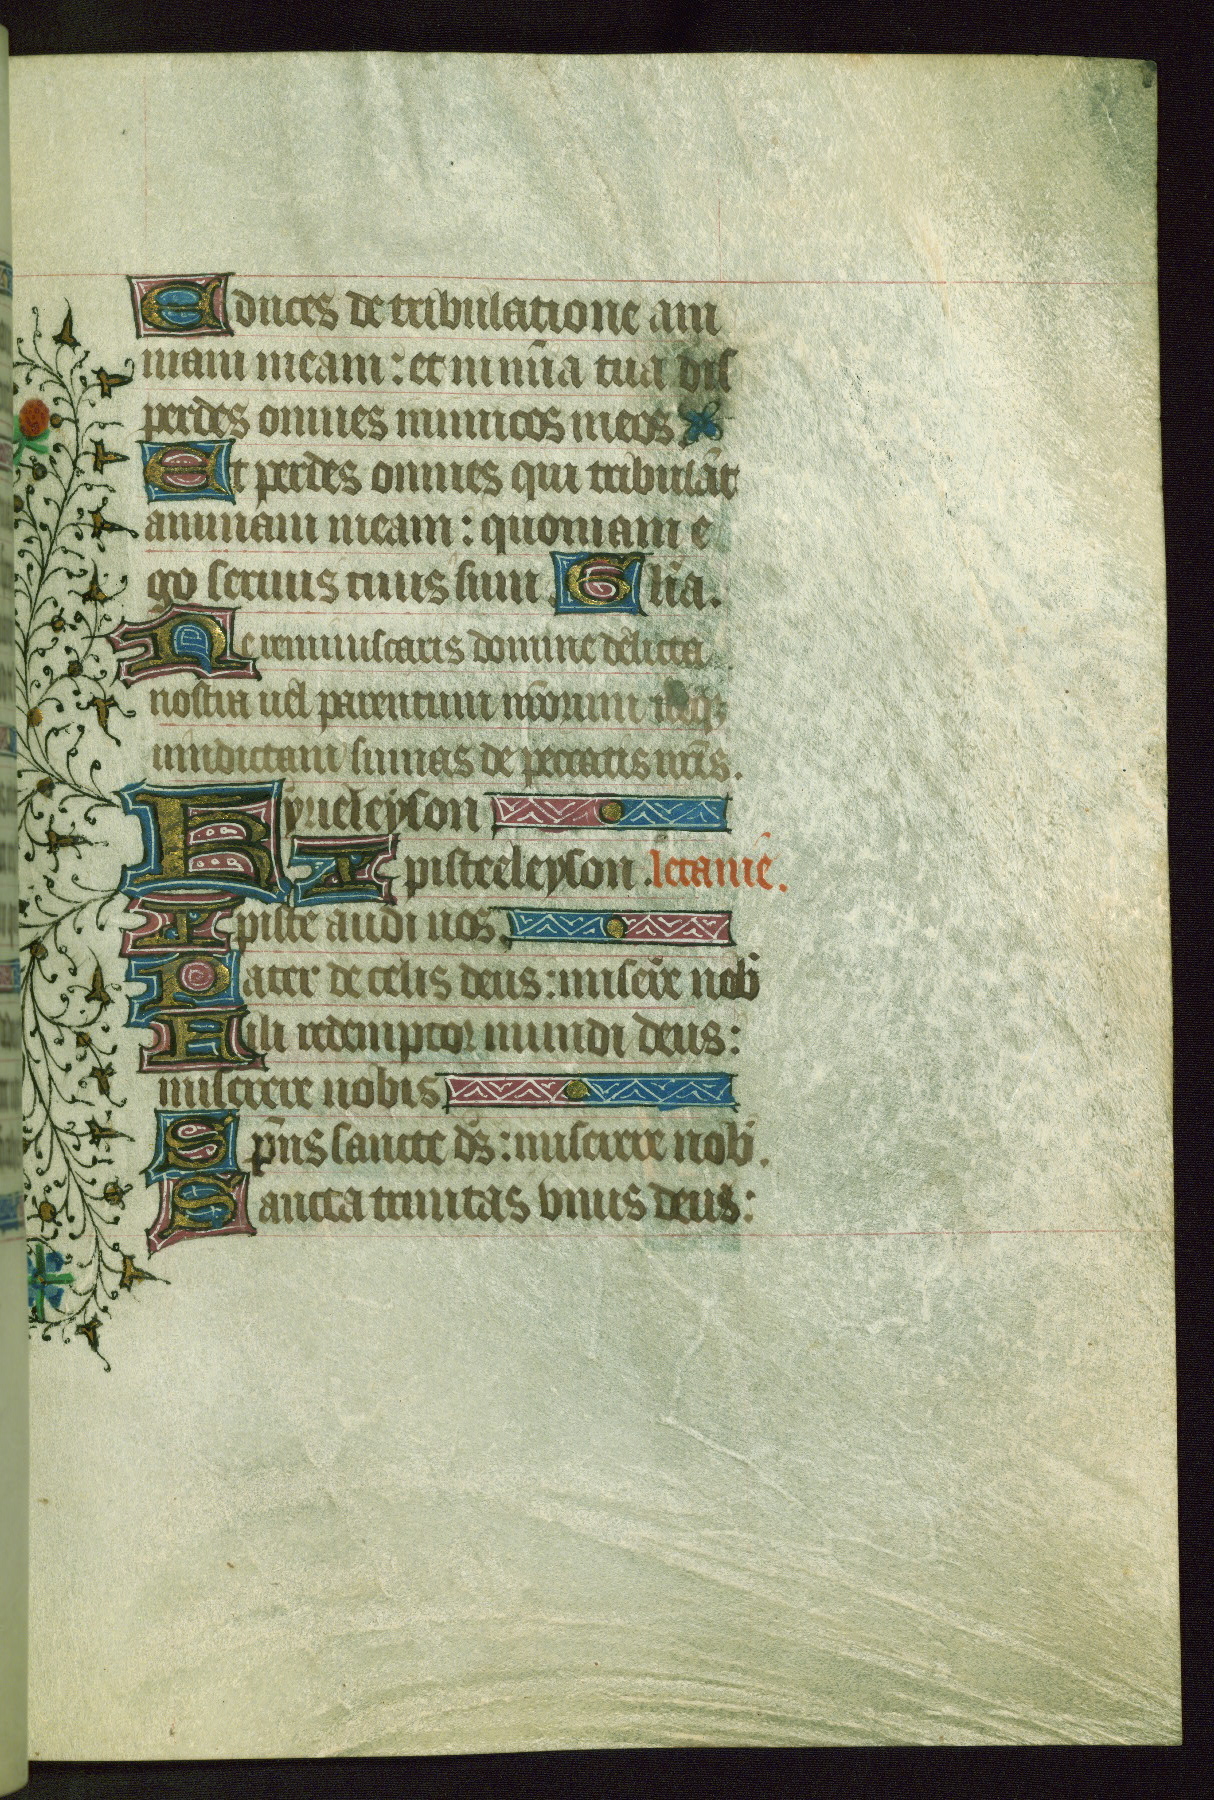 Educes de tribulatione ani
mam meam: et in mĩa tua dis
perdes omnes inimicos meos
Et perdes omnes qui tribulãt
animam meam: quoniam e
go seruus tuus sum Glĩa.
Ne reminiscaris domine delicta
nostra uel parentum nr̃orum
uindictam sumas de peccatis nr̃is.
Kyrieleyson
Xpisteeleyson. letanie.
Xpiste audi nos.
Pater de celis deus: miserẽ nob̃
Fili redemptor mundi deus:
miserere nobis
Sp̃ns sancte ds̃: miserere nob̃.
Sancta trinitas vnus deus: